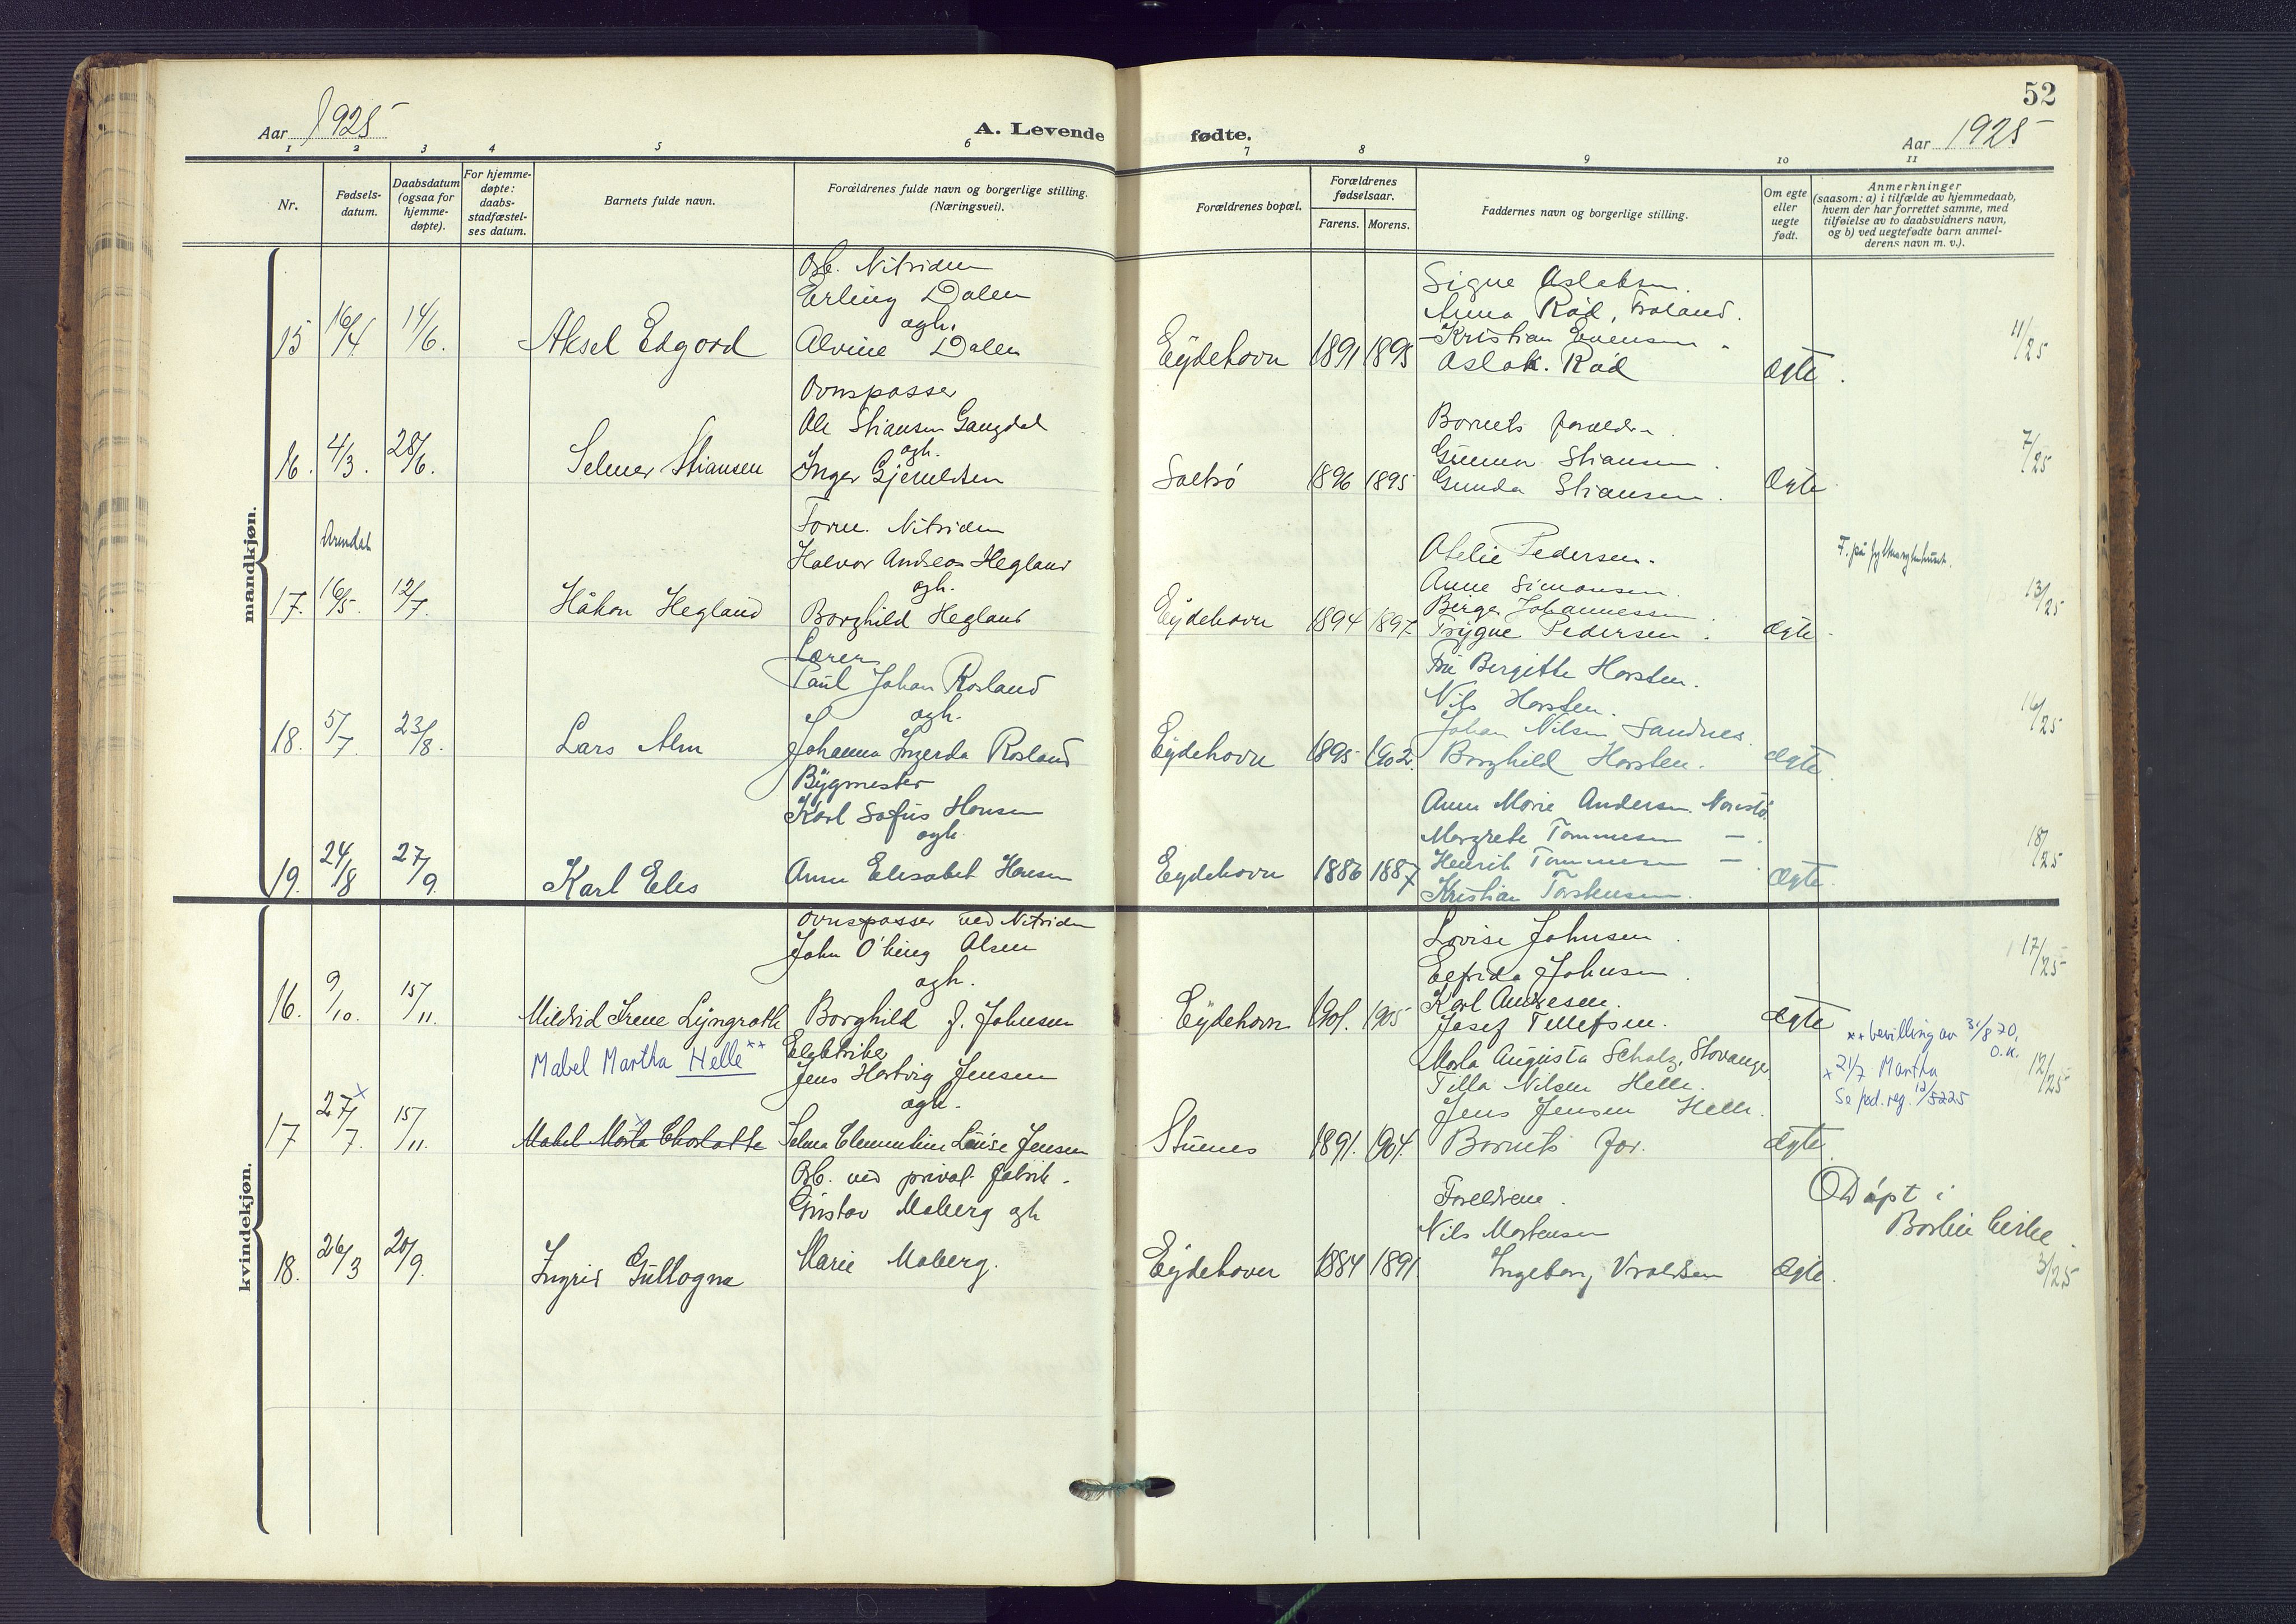 52
Aar 1925
A. Levende fødte.
Aar 1925
1 2 3 4 5 6 7 8 9 10 11
Nr.
Fødsels-
datum.
Daabsdatum
(ogsaa for
hjemme-
døpte).
For hjemme-
døpte:
daabs-
stadfæstel-
ses datum.
Barnets fulde navn.
Forældrenes fulde navn og borgerlige stilling.
(Næringsvei).
Forældrenes bopæl.
Forældrenes
fødselsaar.
Farens. Morens.
Faddernes navn og borgerlige stilling.
Om egte
eller
uegte
født.
Anmerkninger
(saasom: a) i tilfælde av hjemmedaab,
hvem der har forrettet samme, med
tilføielse av to daabsvidners navn,
og b) ved uegtefødte barn anmel-
derens navn m. v.).
mandkjøn.
15 16/4 14/6. Aksel Edgard
Arb. Nitriden
Erling Dalen
ogh.
Alvine Dalen
Eydehavn 1891 1895
Signe Aslaksen.
Anna Råd, Froland.
Kristian Evensen "
Aslak. Råd
Egte.
11/25
16. 4/3. 28/6. Selmer Stiansen
Ovnspasser
Ole Stiansen Gangdal
ogh.
Inger Gjeruldsen
Saltrö 1896 1895
Barnets foreldre.
Gunnar Stiansen.
Gunda Stiansen.
Egte
7/25
Arendal
17. 16/5. 12/7. Håkon Hegland
Form. Nitriden
Halvor Andreas Hegland
ogh.
Borghild Hegland
Eydehavn 1894 1897
Otelie Pedersen.
Anne Simonsen.
Birger Johannessen.
Trygve Pedersen.
Egte.
13/25
18. 5/7. 23/8. Lars Alm
Lærer
Paul Johan Rosland
ogh.
Johanna Ingerda Rosland
Eydehavn 1895 1902.
Fru Bergitte Harsten.
Nils Harsten.
Johan Nilsen Sandnes.
Borghild Harsten.
Egte.
16/25
19. 24/8 27/9. Karl Elis
Bygmester
Karl Sofus Hansen
ogh
Anna Elisabet Hansen
Eydehavn 1886 1887
Anna Marie Andersen
Margrete Tommesen —
Henrik Tommesen —
Kristian Torstensen.
Egte.
18/25
kvindekjøn.
16. 9/10. 15/11. Mildrid Irene Lyngroth
Ovnspasser ved Nitriden
John Olsen
ogh.
Borghild J. Johnsen
Eydehavn 1901. 1905
Lovise Johnsen.
Elfrida Johnsen.
Karl Andresen.
Josef Tellefsen.
Egte
17/25
Mabel Martha Helle xx
17 27/7. x 15/11. Mabel Marta Charlotte
Elektriker
Jens Hartvig Jensen
ogh.
Selma Clementine Louise Jensen
Stuenes 1891. 1904.
Marta Augusta Scholz, Stavanger.
Tilla Nilsen Helle.
Jens Jensen Helle.
Barnets for.
Egte.
xx bevilling av 31/8 20,
O.K.
x 21/7 Martha
Se fød. reg. 12/5225
12/25
18. 26/3 20/9. Ingrid Gullogna
Arb. ved privat fabrik.
Gustav Moberg ogh
Marie Moberg.
Eydehavn 1884 1891.
Foreldrene.
Nils Mortensen
Ingeborg Vraldsen
Egte.
Døpt i
kirke.
3/25